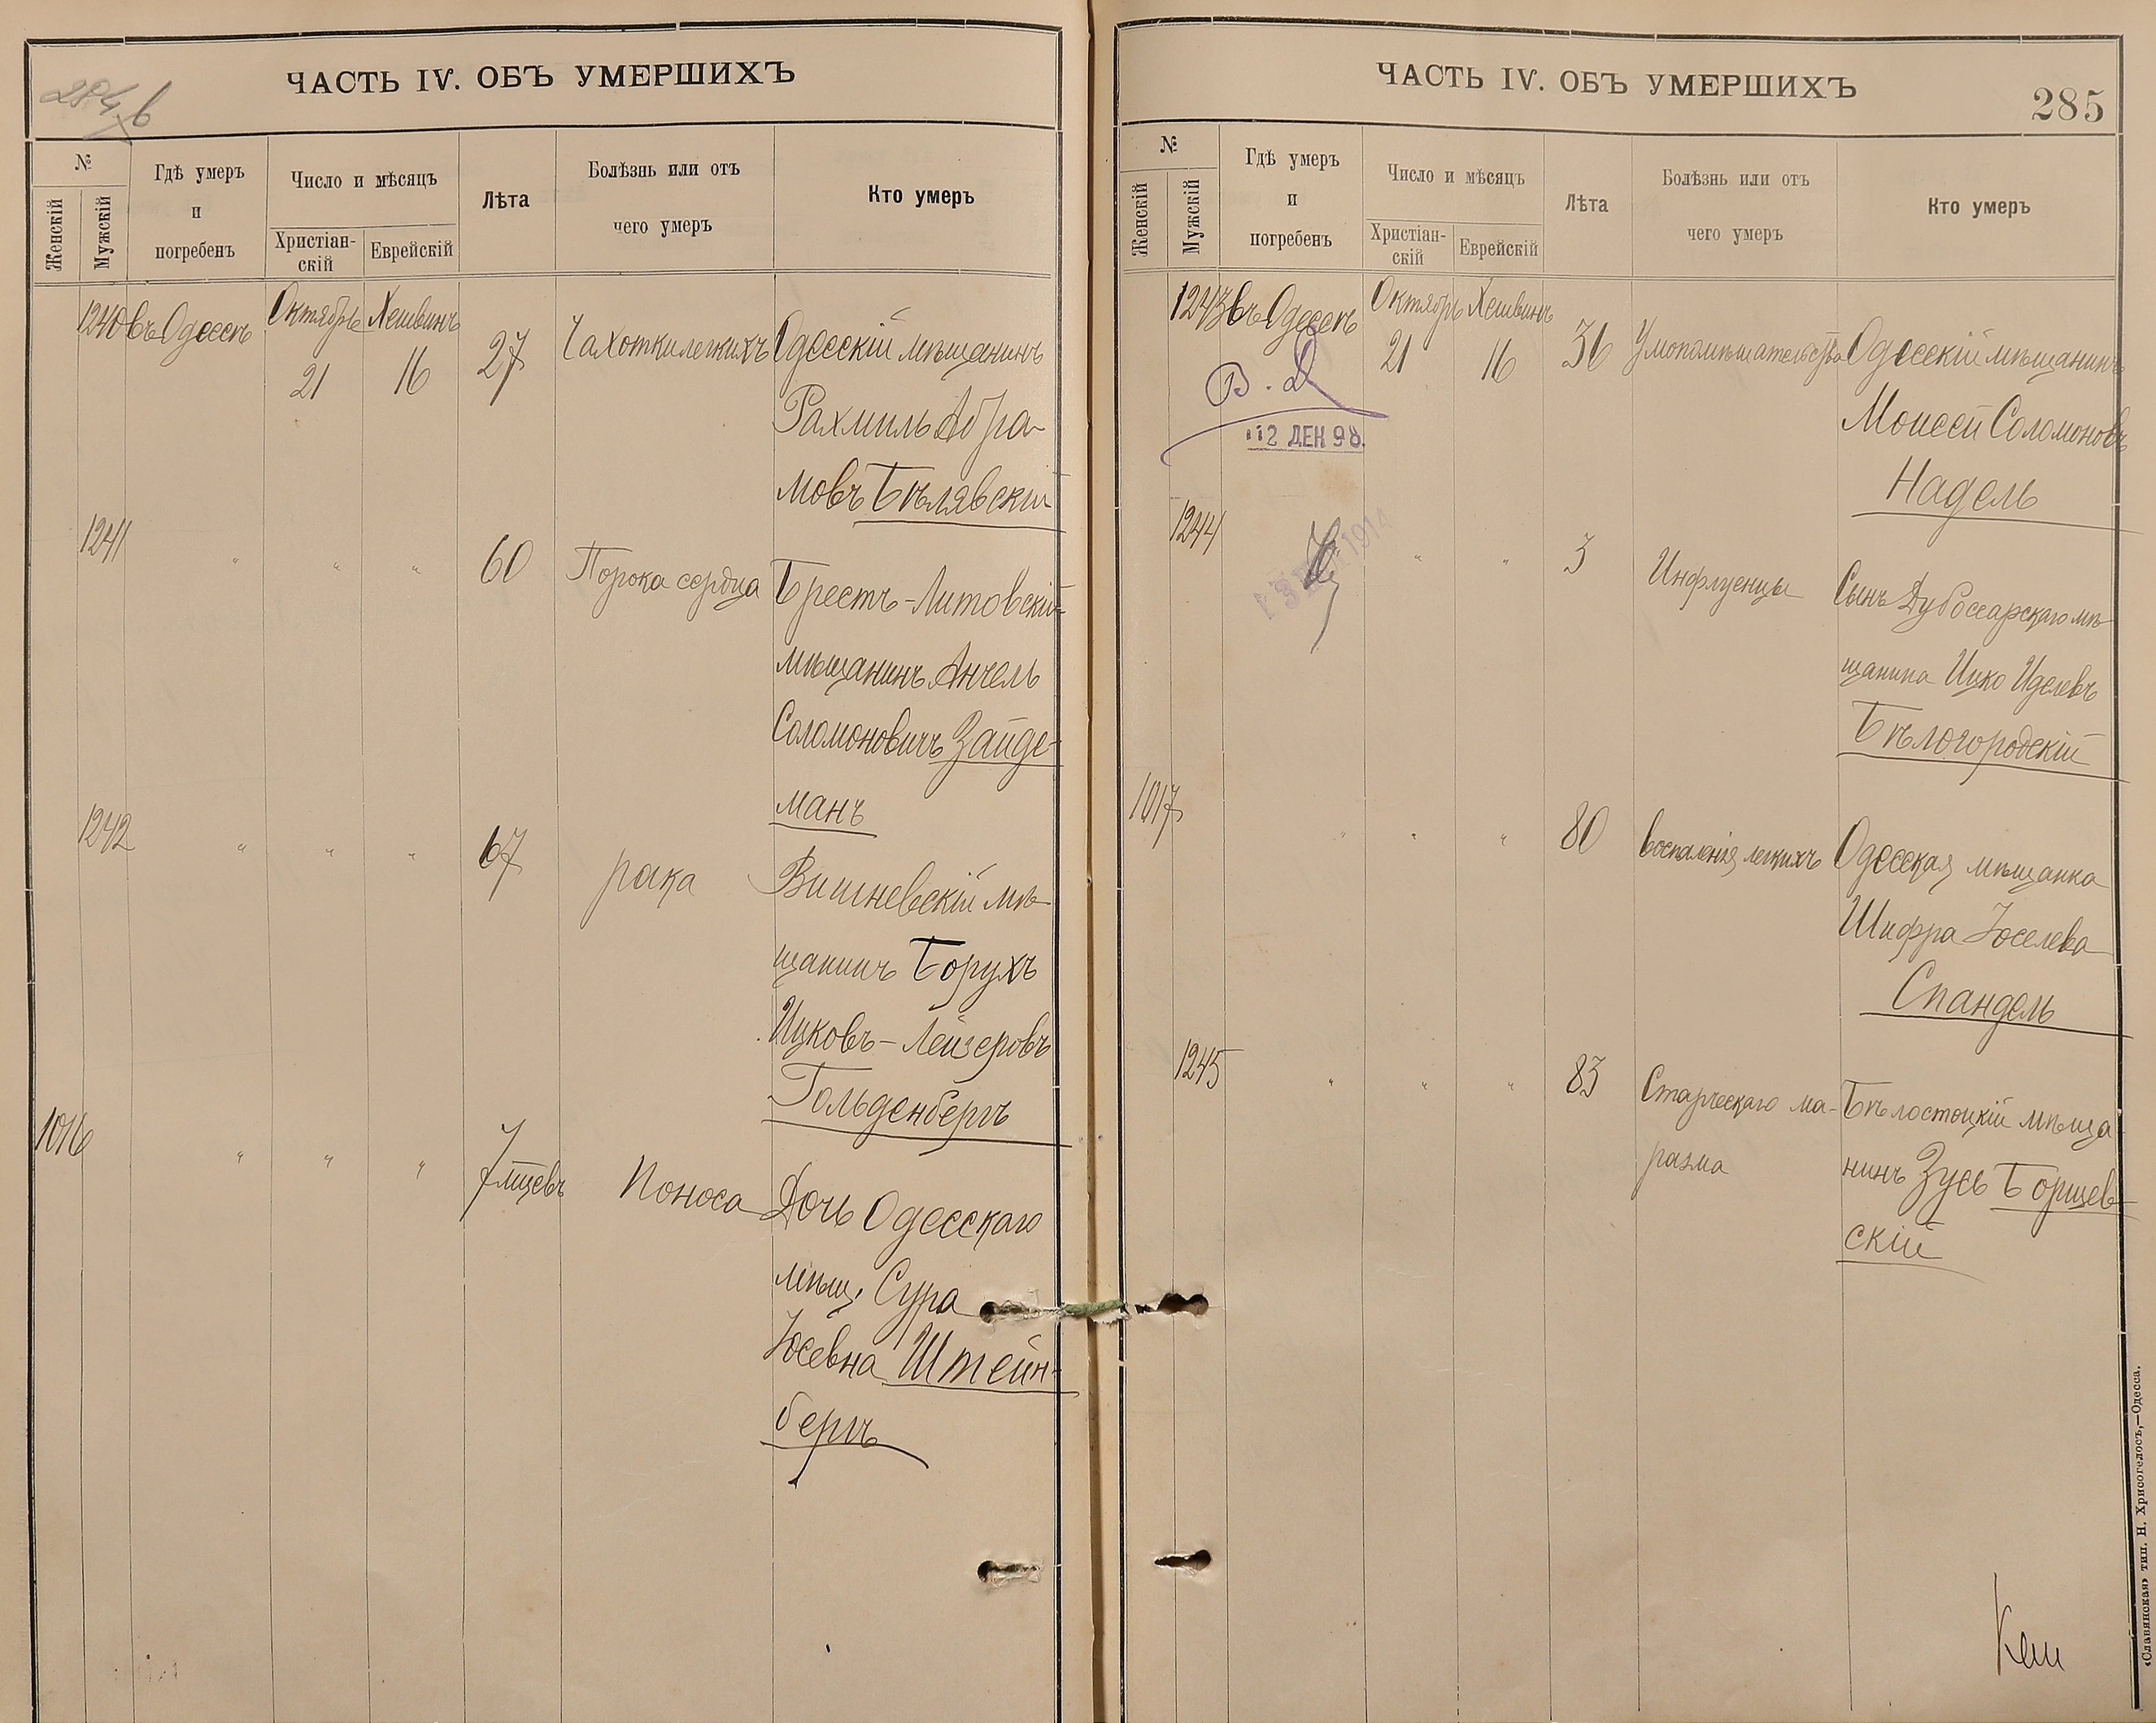 ЧАСТЬ IV. ОБЪ УМЕРШИХЪ
№
Женскій
Мужскій
Гдѣ умеръ
и
погребенъ
Число и мѣсяцъ
Христіан-
скій
Еврейскій
Лѣта
Болѣзнь или отъ
чего умеръ
Кто умеръ
1240 въ Одессѣ Октябрь Хешвинъ
21 16 27 Чахотки легкихъ Одесскій мѣщанинъ
Рахмиль Абра-
мовъ Бѣлявскій
1241 " " " 60 Порока сердца Брестъ-Литовскій
мѣщанинъ Анчель
Соломоновичъ Зайде-
манъ
1242 " " " 67 рака Вишневскій мѣ-
щанинъ Борухъ
Ицковъ-Лейзеровъ
Гольденбергъ
1016 " " " 7 мѣсцевъ Поноса Дочь Одесскаго
мѣщ. Сура
Іосевна Штейн-
бергъ
ЧАСТЬ IV. ОБЪ УМЕРШИХЪ
285
№
Женскій
Мужскій
Гдѣ умеръ
и
погребенъ
Число и мѣсяцъ
Христіан-
скій
Еврейскій
Лѣта
Болѣзнь или отъ
чего умеръ
Кто умеръ
1243 въ Одессѣ Октябрь Хешвинъ
21 16 36 Умопомѣшательства Одесскій мѣщанинъ
В. Д.
12 ДЕК 98.
Моисей Соломоновъ
Надель
1244 " " 3 Инфлуенцы Сынъ Дубоссарскаго мѣ-
1914
щанина Ицко Иделевъ
Бѣлогородскій
1017 " " " 80 воспаленія легкихъ Одесская мѣщанка
Шифра Іоселева
Спандель
1245 " " " 83 Старческаго ма- Бѣлостоцкій мѣща
разма нинъ Зусь Борщев-
скій
«Славянская» тип. Н. Хрисогелосъ,—Одесса.